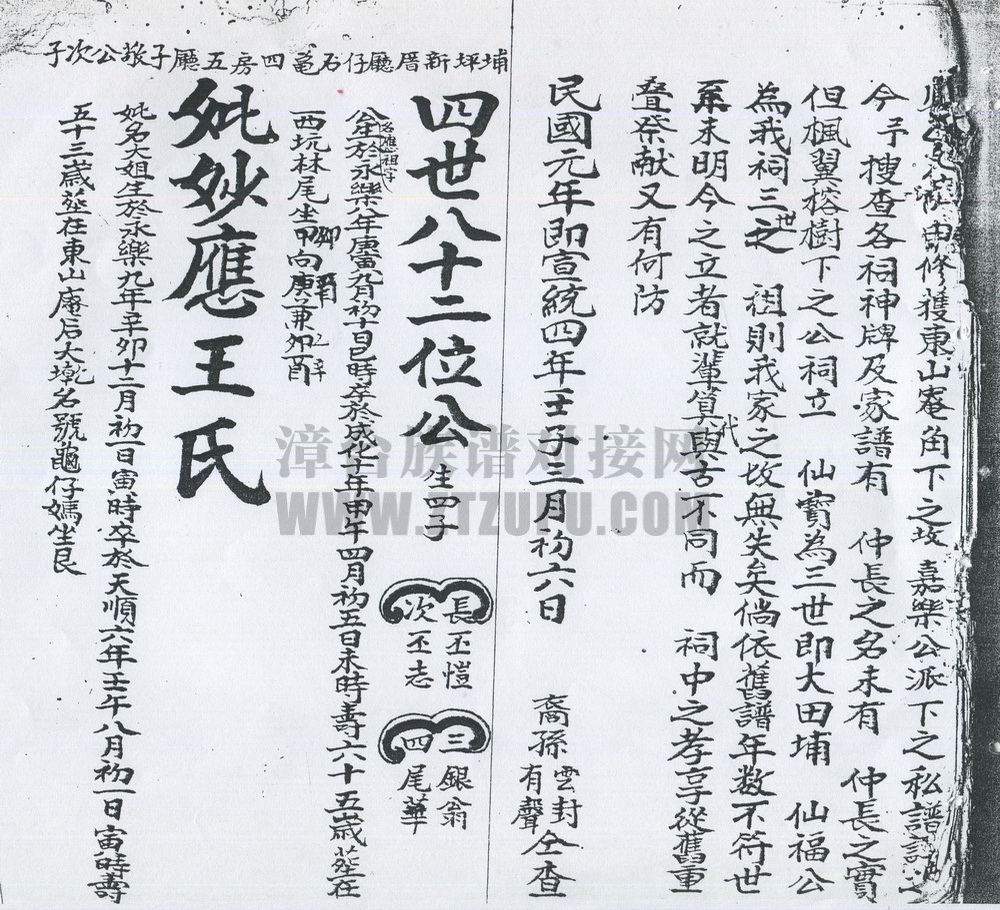 由修獲東山庵角下之故嘉樂公派下之私譜
今予搜查各祠神牌及家譜有 仲長之名未有 仲長之實
但楓翼榕樹下之公祠立 仙寶為三世即大田埔 仙福公
為我祠三世之 祖則我家之故無失矣倘依舊譜年数不符世
系未明今之立者就輩算與古代不同而 祠中之孝享從舊重
疊祭献又有何防
民國元年即宣統四年壬子三月初六日 裔孫雲封有聲仝查
埔坪新厝廳仔石黾四房五廳子敬公次子
四世八十二位公 生四子
長丕愷
次丕志
三銀翁
四尾華
公生於永樂八年庚寅九月初十日巳時卒於成化十年甲午四月初五日未時壽六十五歲塟在
西坑林尾坐甲卯向庚酉兼卯酉
妣妙應王氏
妣名大姐生於永樂九年辛卯十二月初一日寅時卒於天順六年壬午八月初一日寅時壽
五十三歲塟在東山庵后大墘名號龜仔媽坐艮
漳台族谱对接网
WWW.ZTZUPU.COM